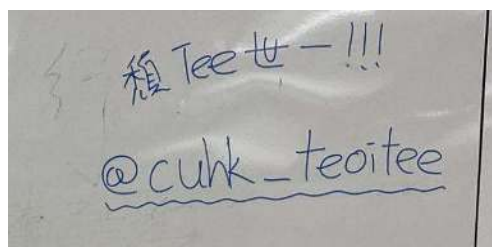 頹Tee世一!!!
@cuhk_teoitee